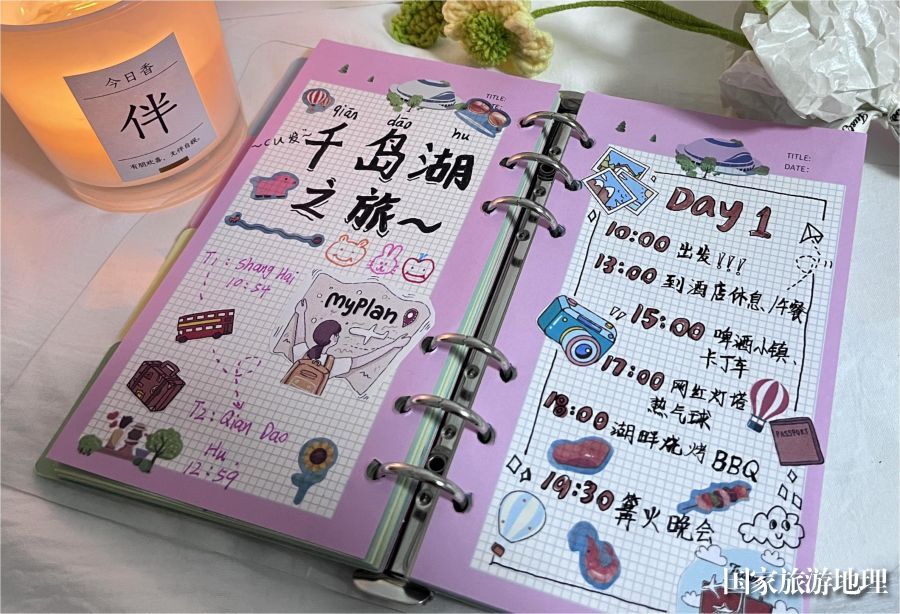 今日香
伴
有朋欢喜，无伴自娱。
TITLE:
qiān dǎo hú
千岛湖
之旅~
T1: Shang Hai
10:54
myPlan
T2: Qian Dao
Hu
12:59
TITLE:
DATE:
Day 1
10:00 出发!!!
13:00 到酒店休息/午餐
15:00 啤酒小镇、
卡丁车
17:00 网红灯塔
热气球
18:00 湖畔烧烤 BBQ
PASSPORT
19:30 篝火晚会
国家旅游地理